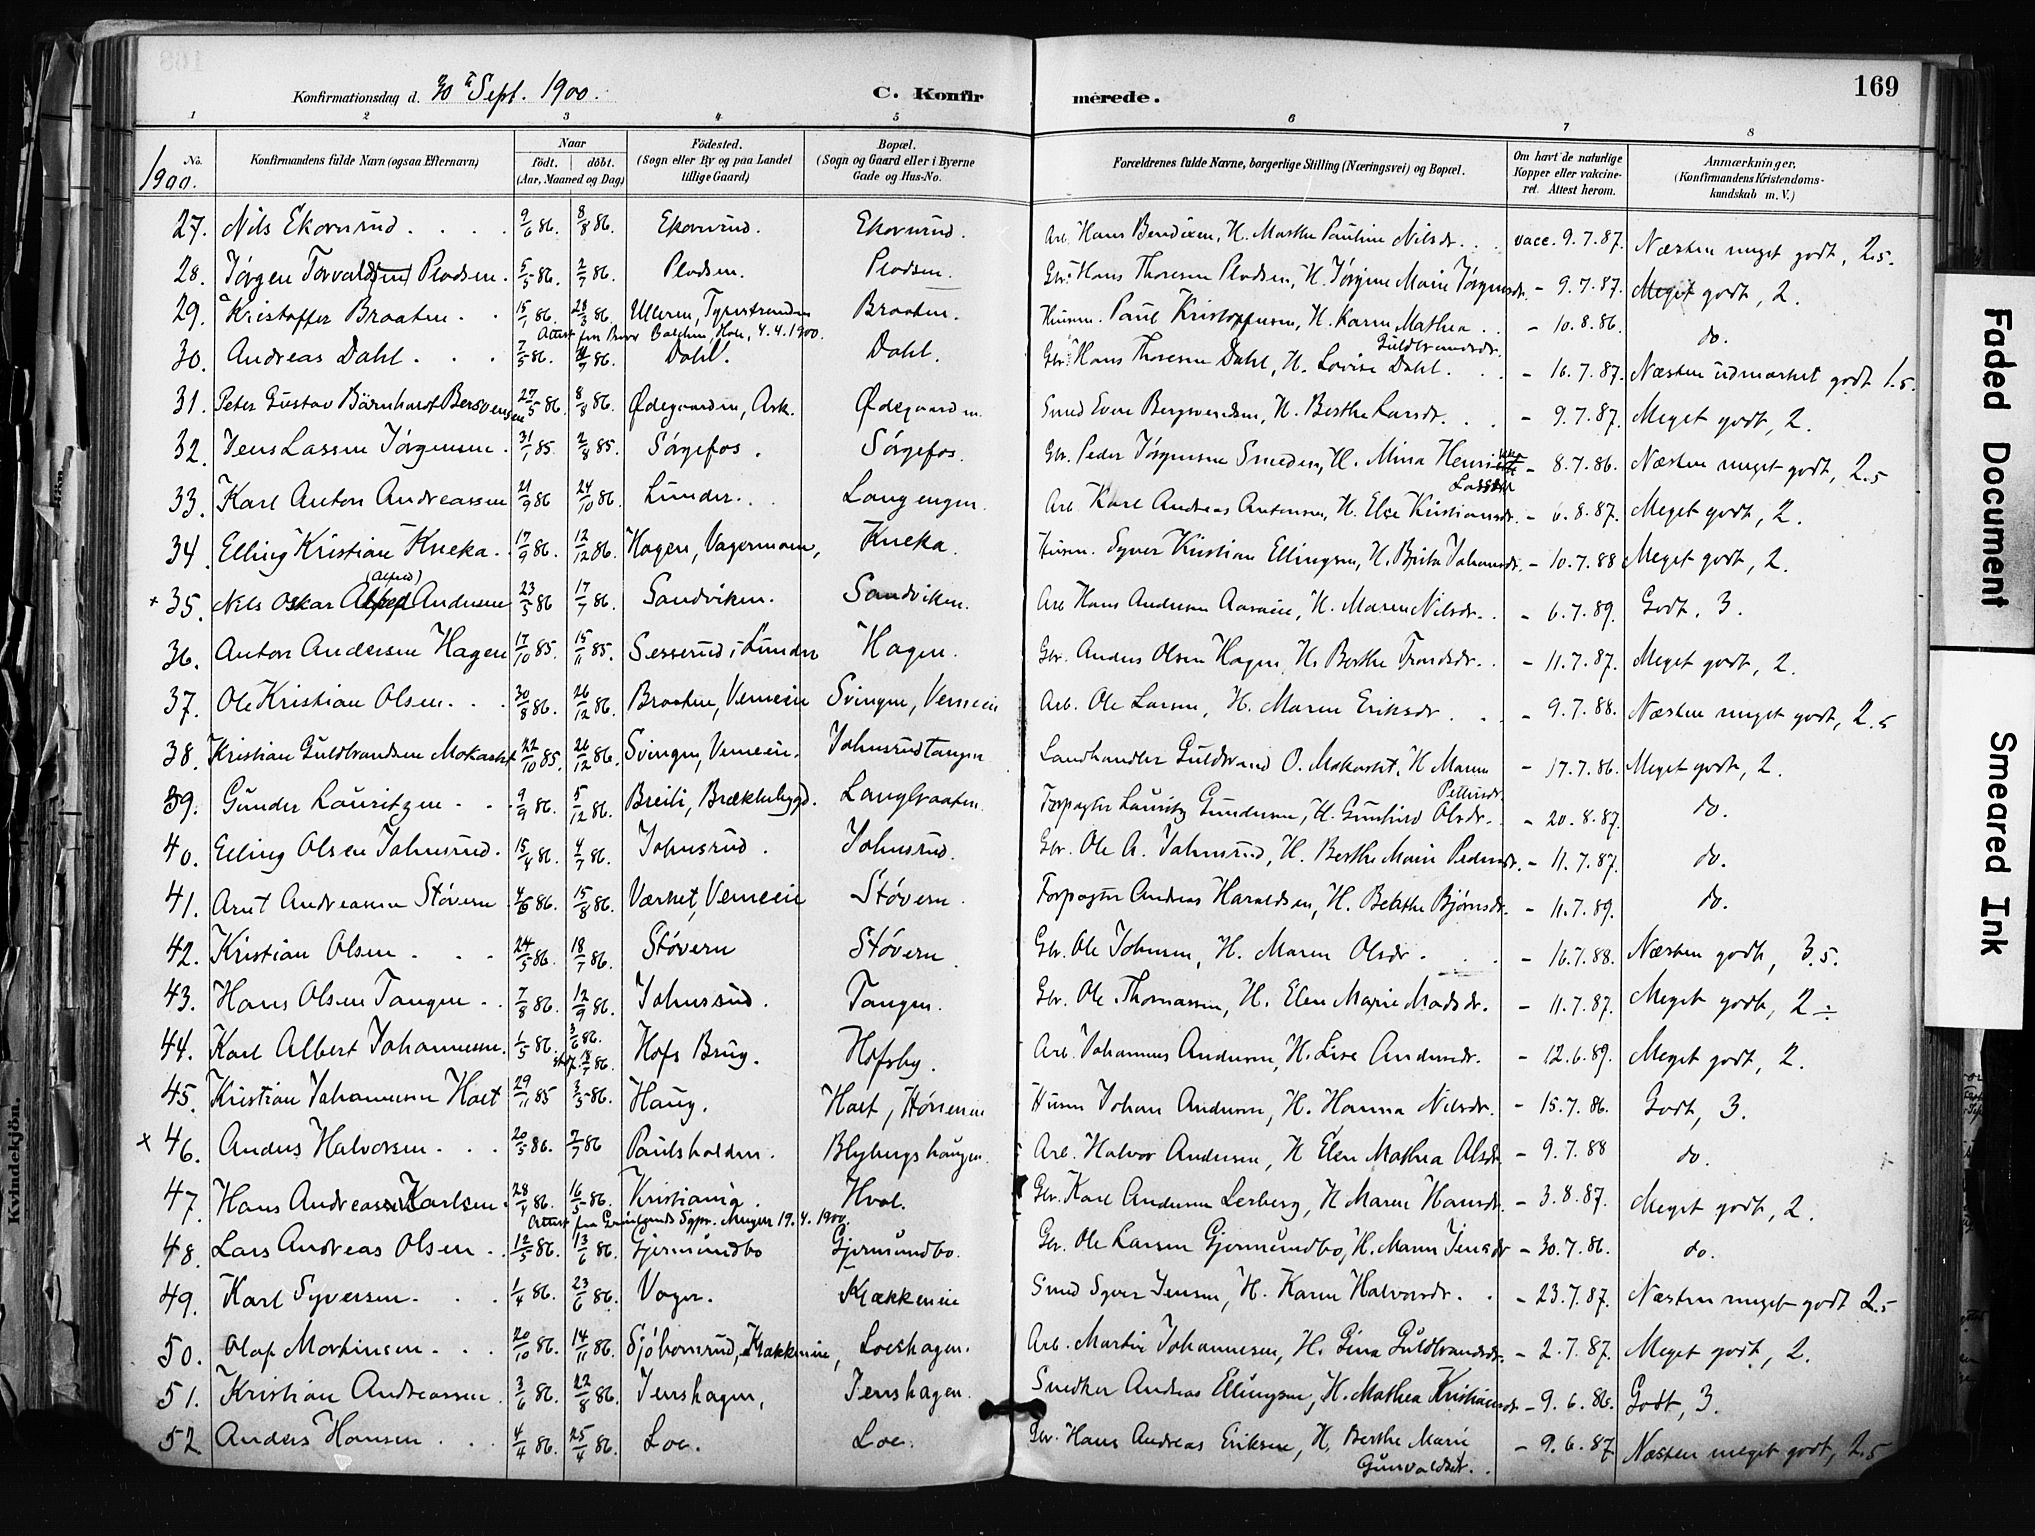 Konfirmationsdag d. 30 te Sept. 1900. C. Konfir merede. 169
1 2 3 4 5 6 7 8
1900. No. Konfirmandens fulde Navn (ogsaa Efternavn) Naar födt. döbt. (Aar, Maaned og Dag) Födested. (Sogn eller By og paa Landet tillige Gaard) Bopæl. (Sogn og Gaard eller i Byerne Gade og Hus-No. Forældrenes fulde Navne, borgerlige Stilling (Næringsvei) og Bopæl. Om havt de naturlige Kopper eller vakcineret. Attest herom. Anmærkninger. (Konfirmandens Kristendomskundskab m. V.)
27. Nils Ekornrud 9/6 86. 8/8 86. Ekornrud. Ekornrud. Arb. Hans Bendixen, H. Marthe Pauline Nilsdr. vacc. 9.7.87. Næsten meget godt, 2.5.
28. Jørgen Torvaldsen Plodsen. 5/5 86. 2/7 86. Plodsen. Plodsen. Gbr. Hans Thoresen Plodsen, H. Jørgine Marie Jørgensdr. - 9.7.87. Meget godt, 2.
29. Kristoffer Braaten 15/1 86. 28/3 86. Ullern, Tyristranden Braaten. Husm. Paul Kristoffersen, H. Karen Mathea Guldbrandsdr. - 10.8.86. do.
Attest fra Hole, 4.4.1900.
30. Andreas Dahl 7/5 86. 86. Dahl. Dahl. Gbr. Hans Thoresen Dahl, H. Lovise Dahl. - 16.7.87. Næsten udmærket godt 1.5.
31. Peter Gustav Bernhardt Bersvensen 27/5 86. 8/8 86. Ødegaarden, Ask. Ødegaarden. Smed Even Bergsvendsen, H. Berthe Larsdr. - 9.7.87. Meget godt, 2.
32. Jens Lassen Jørgensen. 31/1 85. 2/4 85. Sørgefos. Sørgefos. Gbr. Peder Jørgensen Smeden, H. Mina Lassen - 8.7.86. Næsten meget godt, 2.5
33. Karl Anton Andreassen 21/9 86 24/10 86. Lunder. Langengen. Arb. Karl Andreas Antonsen, H. Else Kristiansdr. - 6.8.87. Meget godt, 2.
34. Elling Kristian Kneka. 17/9 86. 12/12 86. Hagen, Vagermoen, Kneka. Husm. Syver Kristian Ellingsen, H. Brita Johansdr. - 10.7.88 Meget godt, 2.
+ 35. Nils Oskar Alfred (Alfred) Andersen 23/5 86 17/7 86. Sandviken. Sandviken. Arb. Hans Andersen Aasveie, H. Maren Nilsdr. - 6.7.89. Godt, 3.
36. Anton Andersen Hagen 17/10 85. 15/11 85. Sesserud i Lunder Hagen. Gbr. Anders Olsen Hagen, H. Berthe Trondsdr. - 11.7.87. Meget godt, 2.
37. Ole Kristian Olsen. 30/8 86. 26/12 86. Braaten, Vemeeie Svingen, Vemeeie Arb. Ole Larsen, H. Maren Eriksdr. - 9.7.88. Næsten meget godt, 2.5
38. Kristian Guldbrandsen Mokastet 22/10 85. 26/12 86. Svingen, Vemeeie. Johnsrudtangen Landhandler Guldbrand O. Mokastet, H. Maren Pettersdr. - 17.7.86. Meget godt, 2.
39. Gunder Lauritzen 9/9 86. 5/12 86. Breili, Brækkebygd. Langbraaten. Forpagter Lauritz Gundersen, H. Gunhild Olsdr. - 20.8.87. do.
40. Elling Olsen Johnsrud. 15/4 86. 4/7 86. Johnsrud. Johnsrud. Gbr. Ole A. Johnsrud, H. Berthe Marie Pedersdr. - 11.7.87. do.
41. Arnt Andreassen Støvern 4/6 86. 15/8 86. Værket, Vemeeie Støvern. Forpagter Andreas Haraldsen, H. Berthe Bjørnsdr. - 11.7.89. do.
42. Kristian Olsen 24/5 86. 18/7 86. Støvern Støvern Gbr. Ole Johnsen, H. Maren Olsdr. - 16.7.88. Næsten godt, 3.5.
43. Hans Olsen Tangen 7/8 86. 12/9 86. Johnsrud. Tangen. Gbr. Ole Thomassen, H. Elen Marie Madsdr. - 11.7.87. Meget godt, 2 ÷
44. Karl Albert Johannesen. 1/5 86. 3/6 86. 18/7 86. Hofs Brug. Hofsby. Arb. Johannes Andersen, H. Lise Andersdr. - 12.6.89. Meget godt, 2.
45. Kristian Johannesen Hoel 29/11 85 3/5 86. Haug. Husm Johan Andersen, H. Hanna Nilsdr. - 15.7.86. Godt, 3.
x 46. Anders Halvorsen 20/5 86. 7/7 86 Paulsholden. Blybergshaugen. Arb. Halvor Andersen, H. Elen Mathea Olsdr. - 9.7.88 do.
47. Hans Andreas Karlsen 28/4 86. 16/5 86. Kristiania. Hval. Gbr. Karl Andersen Lerberg, H. Maren Hansdr. - 3.8.87. Meget godt, 2.
Attest fra Grønlands Sgpr. 19.4.1900.
48. Lars Andreas Olsen 12/5 86. 13/6 86. Gjermundbo Gjermundbo. Gbr. Ole Larsen Gjermundbo, H. Maren Jensdr. - 30.7.86. do.
49. Karl Syversen. 1/4 86. 23/6 86. Vager. Kløkkereie Smed Syver Jensen, H. Karen Halvorsdr. - 23.7.87. Næsten meget godt 2.5
50. Olaf Martinsen 20/10 86. 14/11 86. Sjøbonsrud, Loeshagen. Arb. Martin Johannesen, H. Gina Guldbrandsdr. - 2.7.87. Meget godt, 2.
51. Kristian Andreassen 3/6 86. 22/8 86. Jenshagen, Jenshagen. Snedker Andreas Ellingsen, H. Mathea Kristiansdr. - 9.6.86. Godt, 3.
52 Anders Hansen 4/4 86. 25/4 86. Loe. Loe. Gbr. Hans Andreas Eriksen, H. Berthe Marie Gunvaldsdr. - 9.6.87 Næsten meget godt, 2.5
Faded Document
Smeared Ink
Kvindekjön.